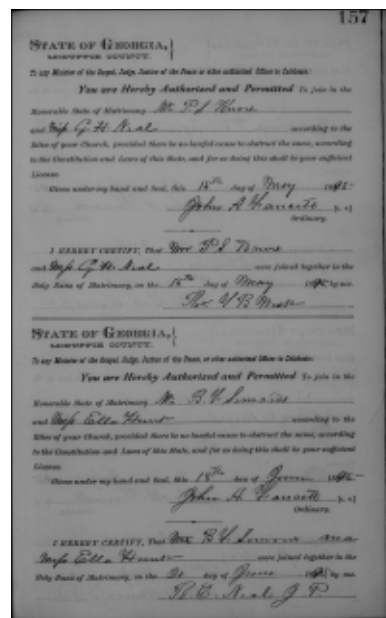 157
STATE OF GEORGIA,
McDUFFIE COUNTY.
To any Minister of the Gospel, Judge, Justice of the Peace or other authorized Officer to Celebrate:
You are Hereby Authorized and Permitted To join in the
Honorable State of Matrimony Mr P S
and Miss G. H. Neal according to the
Rites of your Church, provided there be no lawful cause to obstruct the same, according
to the Constitution and Laws of this State, and for so doing this shall be your sufficient
License.
Given under my hand and Seal, this 18th day of May
John A
Ordinary.
I HEREBY CERTIFY, That P S
and Miss G. H. Neal were joined together in the
Holy Bans of Matrimony, on the day of May by me.
STATE OF GEORGIA,
McDUFFIE COUNTY.
To any Minister of the Gospel, Judge, Justice of the Peace, or other authorized Officer to Celebrate:
You are Hereby Authorized and Permitted To join in the
Honorable State of Matrimony Mr B. V.
and Miss Ella Hunt according to the
Rites of your Church, provided there be no lawful cause to obstruct the same, according
to the Constitution and Laws of this State, and for so doing this shall be your sufficient
License.
Given under my hand and Seal, this 18th day of June
John A
Ordinary.
I HEREBY CERTIFY, That B. V. and
Miss Ella Hunt were joined together in the
Holy Bans of Matrimony, on the day of June by me.
R. E. Neal J P